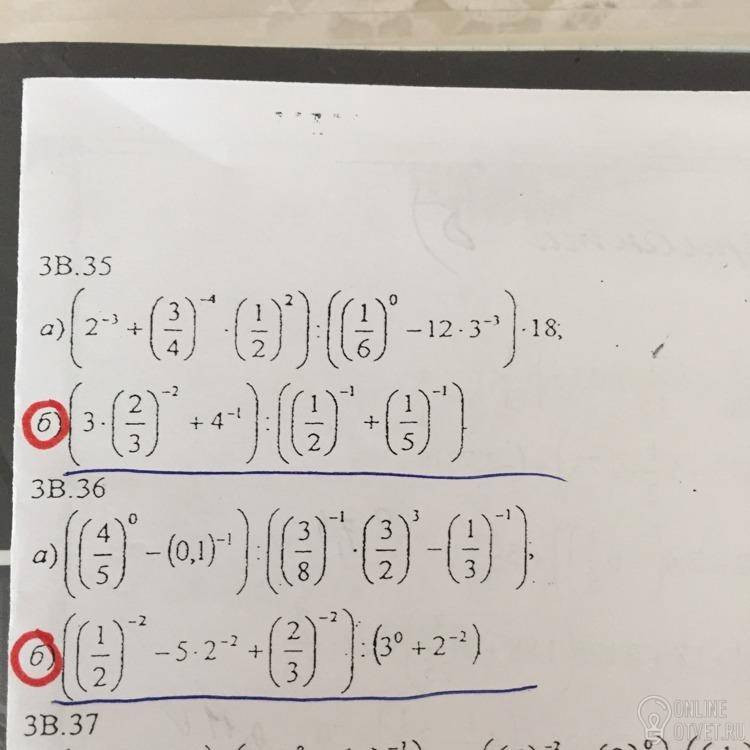 3В.35
а) (2⁻³ + (3/4)⁻⁴ · (1/2)²) : ((1/6)⁰ − 12 · 3⁻³) · 18;
б) (3 · (2/3)⁻² + 4⁻¹) : ((1/2)⁻¹ + (1/5)⁻¹).
3В.36
а) ((4/5)⁰ − (0,1)⁻¹) : ((3/8)⁻¹ · (3/2)³ − (1/3)⁻¹);
б) ((1/2)⁻² − 5 · 2⁻² + (2/3)⁻²) : (3⁰ + 2⁻²)
3В.37
ONLINE
OTVET.RU